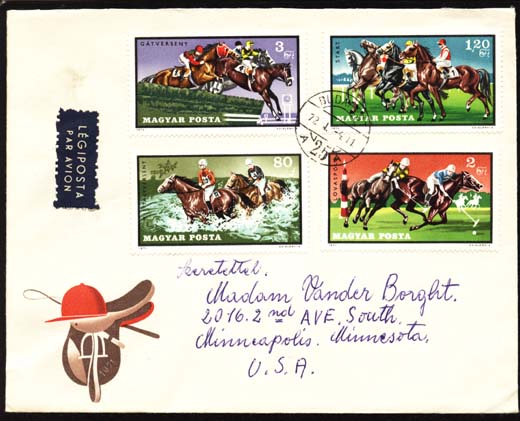 GÁTVERSENY
3 Ft
MAGYAR POSTA
START
1,20 Ft
MAGYAR POSTA
LÉGIPOSTA
PAR AVION
80
MAGYAR POSTA
LOVASPÓLÓ
2 Ft
MAGYAR POSTA
Szeretettel.
Madam Vander Borght.
2016.2nd AVE, South.
Minneapolis. Minnesota.
U.S.A.
1971